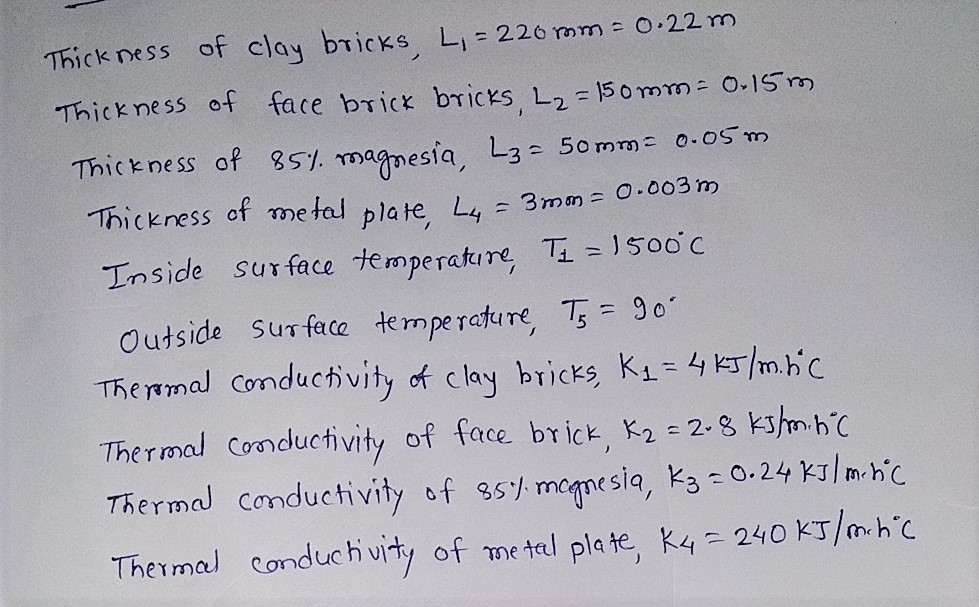 Thickness of clay bricks, L1 = 220 mm = 0.22 m
Thickness of face brick bricks, L2 = 150 mm = 0.15 m
Thickness of 85% magnesia, L3 = 50 mm = 0.05 m
Thickness of metal plate, L4 = 3 mm = 0.003 m
Inside surface temperature, T1 = 1500°C
Outside surface temperature, T5 = 90°
Thermal conductivity of clay bricks, K1 = 4 KJ/m.h°C
Thermal conductivity of face brick, K2 = 2.8 KJ/m.h°C
Thermal conductivity of 85% magnesia, K3 = 0.24 KJ/m.h°C
Thermal conductivity of metal plate, K4 = 240 KJ/m.h°C